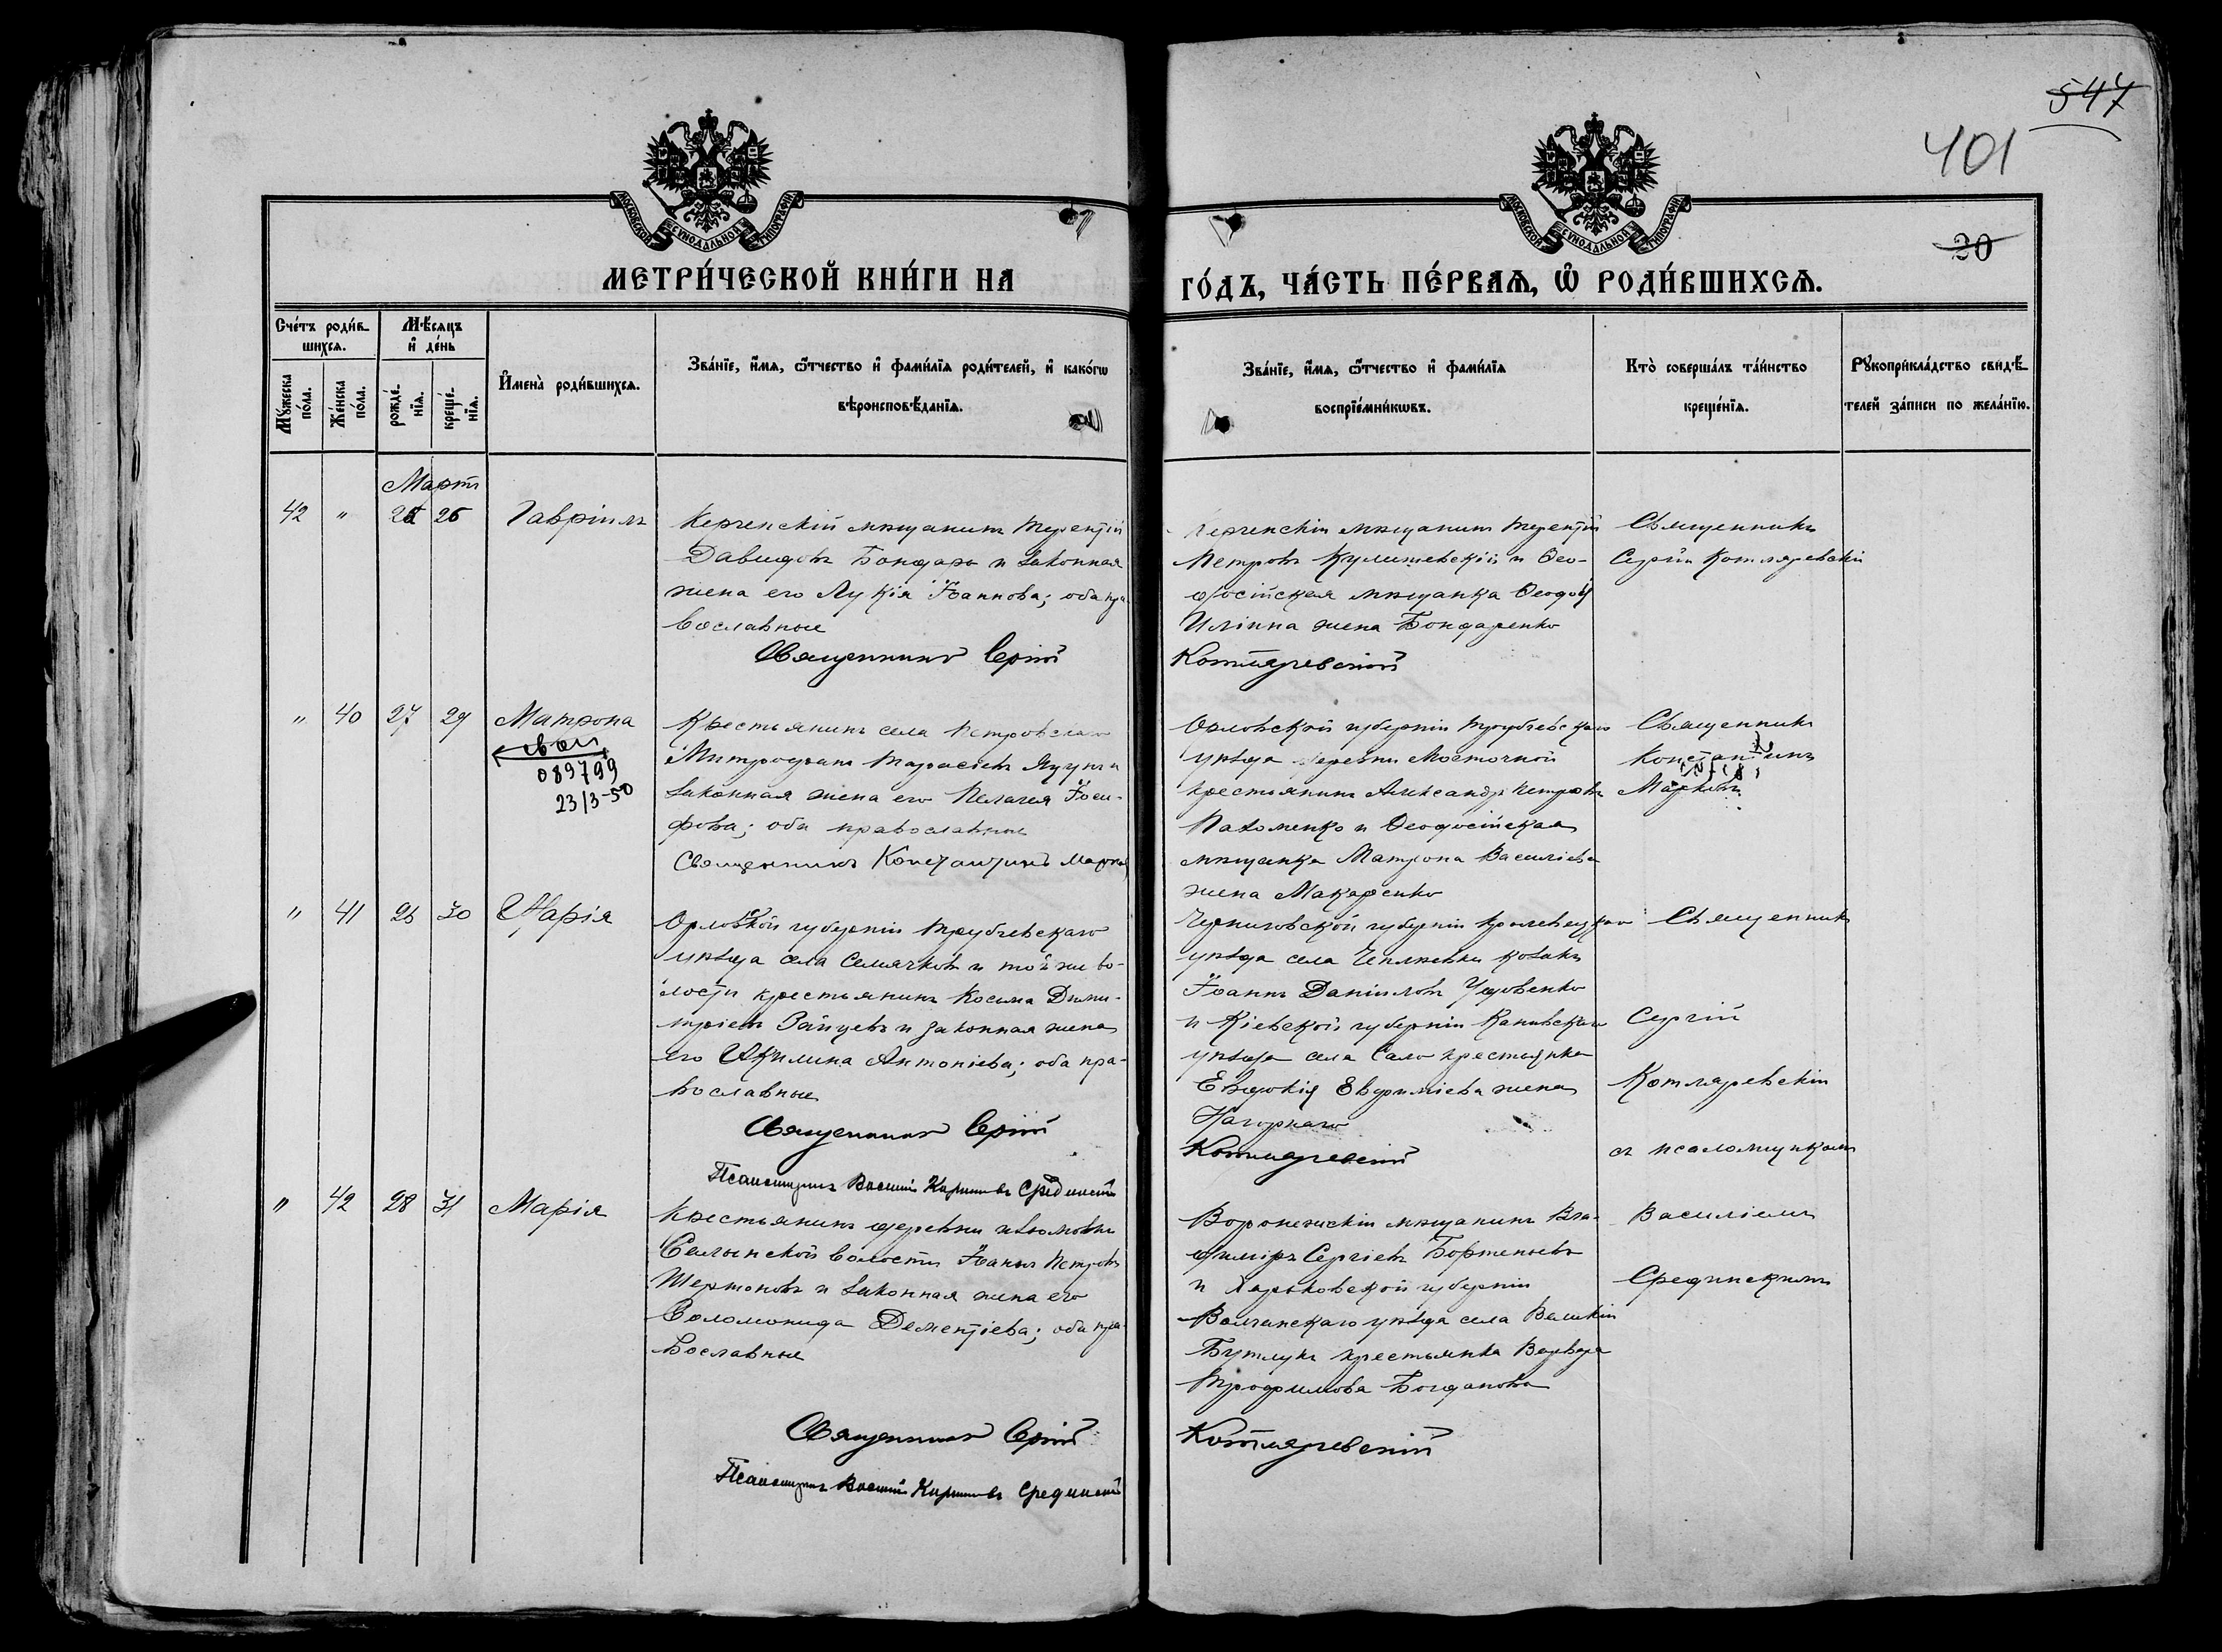 547
401
20
МОСКОВСКОЙ СѴНОДАЛЬНОЙ ТИПОГРАФІИ
МОСКОВСКОЙ СѴНОДАЛЬНОЙ ТИПОГРАФІИ
МЕТРИ́ЧЕСКОЙ КНИ́ГИ НА
ГО́ДЪ, ЧА́СТЬ ПЕ́РВАѦ, Ѡ РОДИ́ВШИХСѦ.
Сче́тъ роди́в-
шихсѧ.
Мѣ́сѧцъ
и҆ де́нь
Мꙋ́жеска
по́ла.
Же́нска
по́ла.
рожде́-
нїѧ.
креще́-
нїѧ.
И҆мена̀ роди́вшихсѧ.
Зва́нїе, и҆́мѧ, ѻ҆́тчество и҆ фами́лїѧ роди́телей, и҆ како́гѡ
вѣроисповѣ́данїѧ.
Зва́нїе, и҆́мѧ, ѻ҆́тчество и҆ фами́лїѧ
воспрїе́мникѡвъ.
Кто̀ соверша́лъ та́инство
креще́нїѧ.
Рꙋкоприкла́дство свидѣ́-
телей за́писи по жела́нїю.
Мартъ
42 " 25 26 Гавріилъ
Керченскій мѣщанинъ Терентій
Давидовъ Бондарь и законная
жена его Лукія Іоаннова; оба пра-
вославные
Священникъ Сергій
Керченскій мѣщанинъ Терентій
Петровъ Кулишевскій и Ѳео-
досійская мѣщанка
Иліина жена Бондаренко
Котляревскій
Священникъ
Сергій Котляревскій
" 40 27 29 Матрона
089799
23/3-50
Крестьянинъ села Петровскаго
Митрофанъ Тарасіевъ и
законная жена его Пелагея Іоси-
фова; оба православные
Священникъ Константинъ Марковъ
Орловской губерніи Трубчевскаго
уѣзда деревни
крестьянинъ Александръ Петровъ
Пахоменко и Ѳеодосійская
мѣщанка Матрона Василіева
жена Макаренко
Священникъ
Константинъ
Марковъ
" 41 26 30 Марія
Орловской губерніи Трубчевскаго
уѣзда села Семячковъ и той же во-
лости крестьянинъ Косьма Дими-
тріевъ Зайцевъ и законная жена
его Акилина Антоніева; оба пра-
вославные
Священникъ Сергій
Псаломщикъ Василій Срединскій
Черниговской губерніи Кролевецкаго
уѣзда села козакъ
Іоаннъ Даніиловъ
и Кіевской губерніи Каневскаго
уѣзда села крестьянка
Евдокія Евфиміева жена
Нагорнаго
Котляревскій
Священникъ
Сергій
Котляревскій
съ псаломщикомъ
" 42 28 31 Марія
Крестьянинъ деревни
волости Іоаннъ Петровъ
и законная жена его
Соломонида Дементіева; оба пра-
вославные
Священникъ Сергій
Псаломщикъ Василій Срединскій
Воронежскій мѣщанинъ Вла-
диміръ Сергіевъ
и Харьковской губерніи
Волчанскаго уѣзда села Великій
Бурлукъ крестьянка Варвара
Трофимова Богданова
Котляревскій
Василіемъ
Срединскимъ